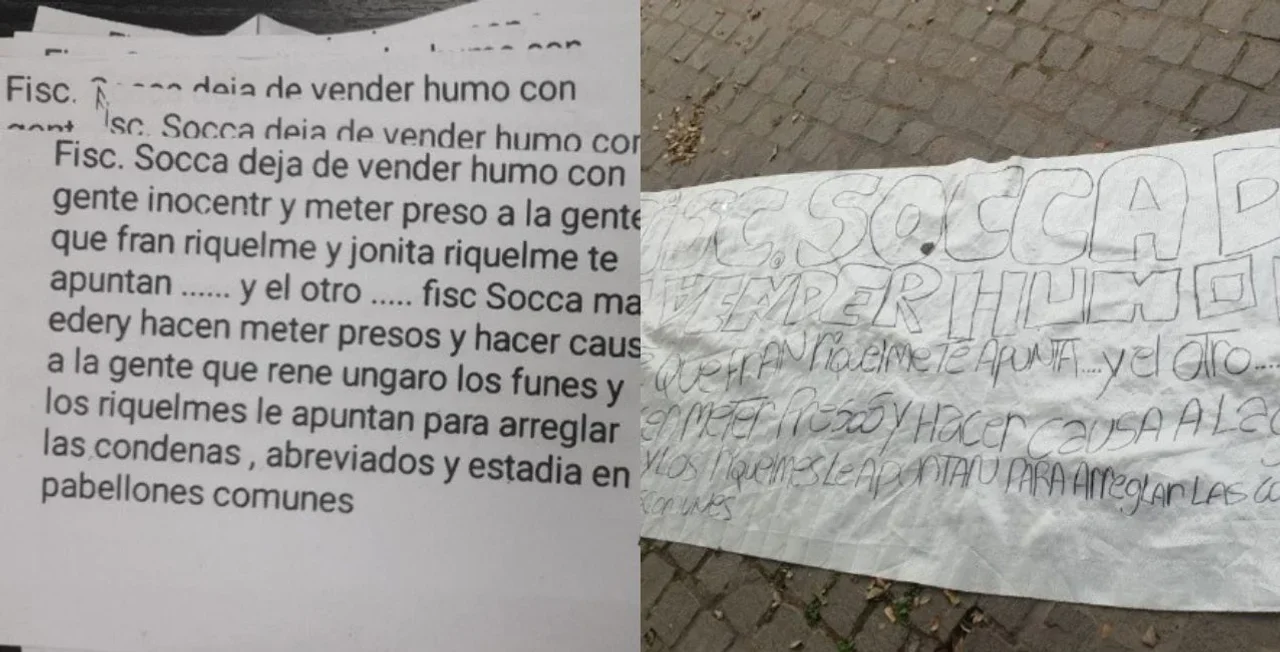 Fisc. deja de vender humo con
isc. Socca deja de vender humo con
Fisc. Socca deja de vender humo con
gente inocentr y meter preso a la gente
que fran riquelme y jonita riquelme te
apuntan ...... y el otro ..... fisc Socca ma
edery hacen meter presos y hacer caus
a la gente que rene ungaro los funes y
los riquelmes le apuntan para arreglar
las condenas , abreviados y estadia en
pabellones comunes
FISC. SOCCA D
VENDER HUMO
QUE FRAN RiquelmeTE APUNTA.... y el otro.....
en METER PresosY HAcer CAUSA A LA
y LOS riquelmes Le APUNTAN PARA Arreglar LAS co
comunes